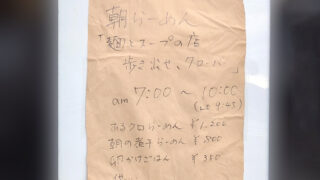 朝らーめん
「麺とスープの店
歩き出せ、クローバー」
am 7:00 ～ 10:00
(Lo 9:45)
あるクロらーめん ¥1,200
朝の煮干らーめん ¥800
卵かけごはん ¥350
他